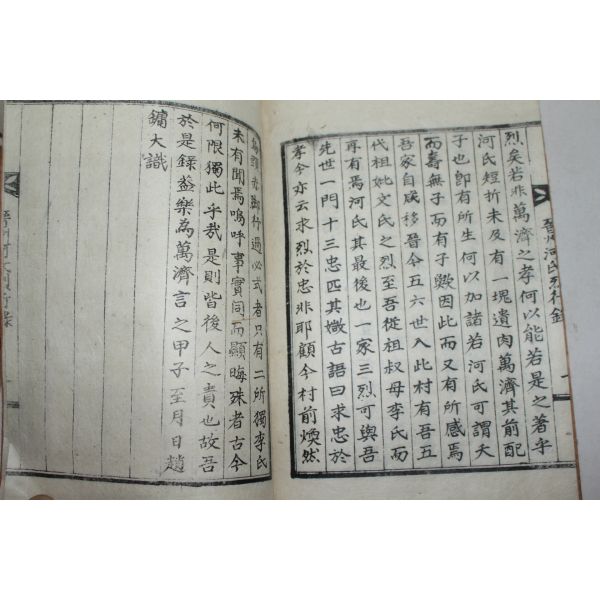 晉州河氏烈行錄
烈矣若非萬濟之孝何以能若是之著乎
河氏短折未及有一塊遺肉萬濟其前配
子也卽有所生何以加諸若河氏可謂夭
而壽無子而有子歟因此而又有所感焉
吾家自咸移晉今五六世入此村有吾五
代祖妣文氏之烈至吾從祖叔母李氏而
序有焉河氏其最後也一家三烈可與吾
先世一門十三忠匹其媺古語曰求忠於
孝今亦云求烈於忠非耶顧今村前煥然
赤脚行過必式者只有二所獨李氏
未有聞焉嗚呼事實同而顯晦殊者古今
何限獨此乎哉是則皆後人之責也故吾
於是錄益樂為萬濟言之甲子至月日趙
鏞大識